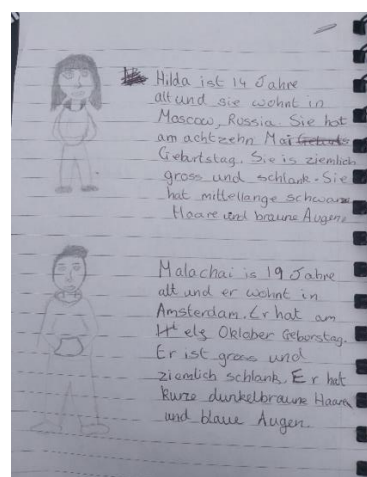 Hilda ist 14 Jahre
alt und sie wohnt in
Moscow, Russia. Sie hat
am achtzehn Mai
Geburtstag. Sie is ziemlich
gross und schlank. Sie
hat mittellange schwarze
Haare und braune Augen.
Malachai is 19 Jahre
alt und er wohnt in
Amsterdam. Er hat am
elf Oktober Geborstag.
Er ist gross und
ziemlich schlank. Er hat
kurze dunkelbraune Haare
und blaue Augen.